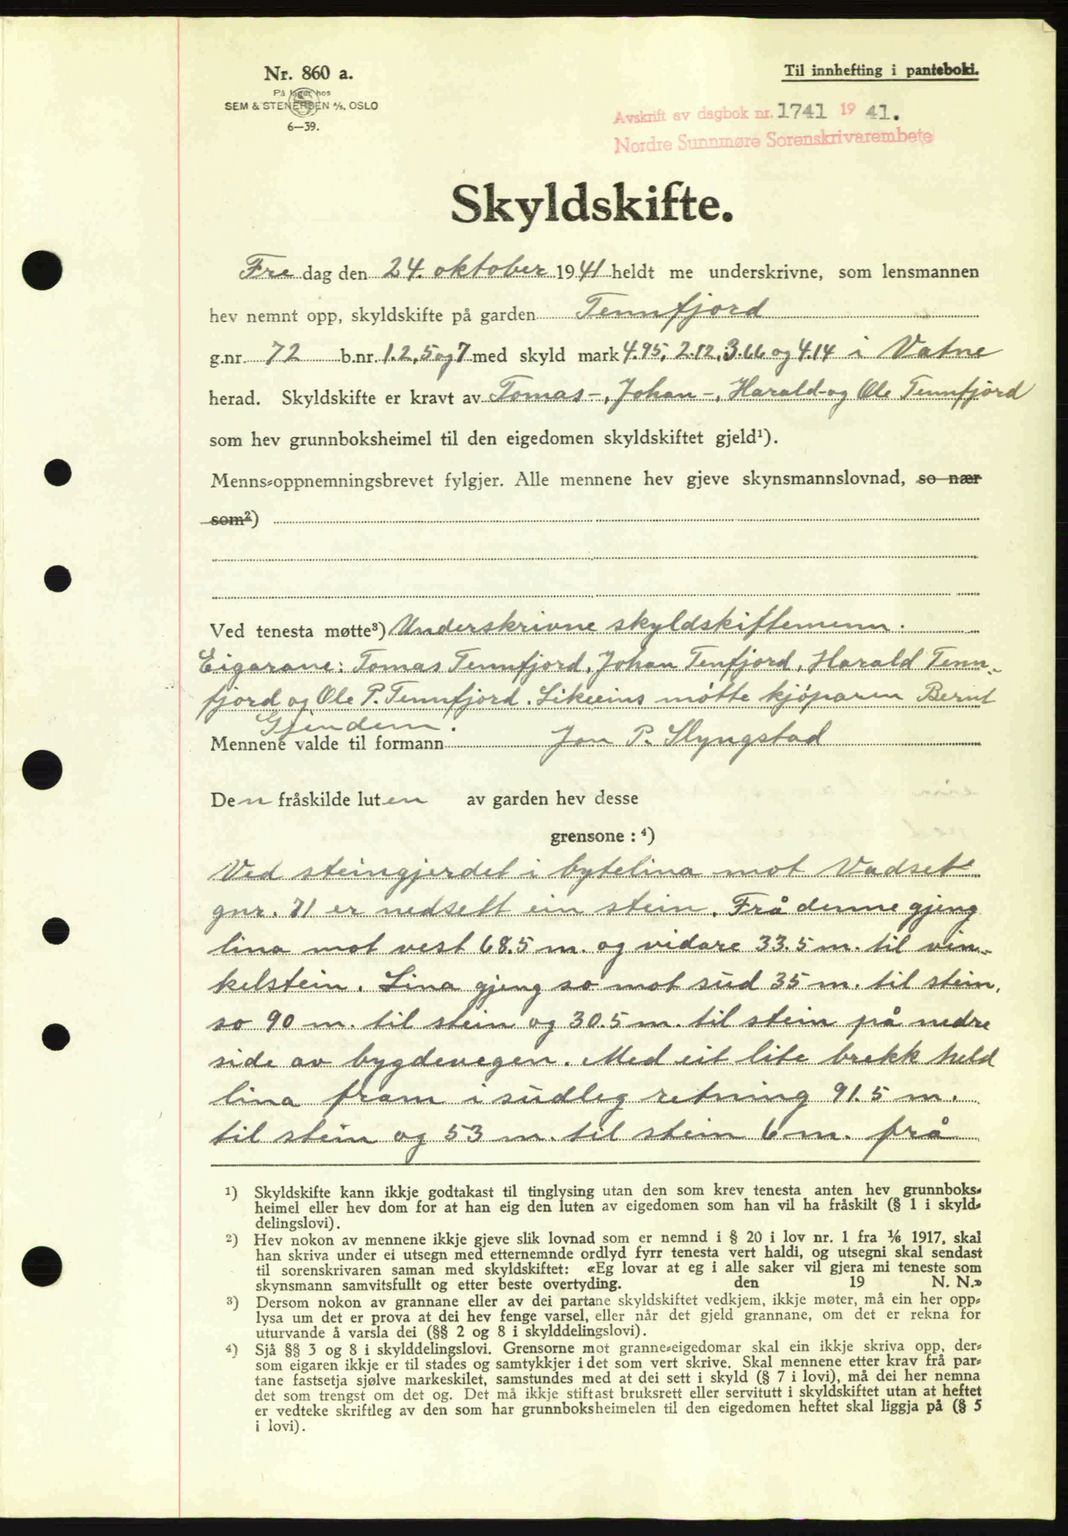 Nr. 860 a.
På lager hos
SEM & STENERSEN A/S, OSLO
6—39.
Til innhefting i panteboki.
Avskrift av dagbok nr. 1741 19 41.
Nordre Sunnmøre Sorenskrivarembete
Skyldskifte.
Fre dag den 24. oktober 1941 heldt me underskrivne, som lensmannen
hev nemnt opp, skyldskifte på garden Tennfjord
g.nr. 72 b.nr. 1.2,5 og 7 med skyld mark 4.95, 2.12, 3.66 og 4.14 i Vatne
herad. Skyldskifte er kravt av Tomas-, Johan-, Harald- og Ole Tennfjord
som hev grunnboksheimel til den eigedomen skyldskiftet gjeld¹).
Menns-oppnemningsbrevet fylgjer. Alle mennene hev gjeve skynsmannslovnad, so nær
som²)
Ved tenesta møtte³) Underskrivne skyldskiftemenn.
Eigarane: Tomas Tennfjord, Johan Tenfjord, Harald Tenn-
fjord og Ole P. Tennfjord. Likeeins møtte kjöparen Bernt
Gjendem.
Mennene valde til formann Jon P. Slyngstad
Den fråskilde luten av garden hev desse
grensone: ⁴)
Ved steingjerdet i bytelina mot Vadset
gnr. 71 er nedsett ein stein. Frå denne gjeng
lina mot vest 68.5 m. og vidare 33.5 m. til vin-
kelstein. Lina gjeng so mot sud 35 m. til stein,
so 90 m. til stein og 30.5 m. til stein på nedre
side av bygdevegen. Med eit lite brekk held
lina fram i sudleg retning 91.5 m.
til stein og 53 m. til stein 6 m. frå
¹) Skyldskifte kann ikkje godtakast til tinglysing utan den som krev tenesta anten hev grunnboks-
heimel eller hev dom for at han eig den luten av eigedomen som han vil ha fråskilt (§ 1 i skyld-
delingslovi).
²) Hev nokon av mennene ikkje gjeve slik lovnad som er nemnd i § 20 i lov nr. 1 fra ¹⁄₆ 1917, skal
han skriva under ei utsegn med etternemnde ordlyd fyrr tenesta vert haldi, og utsegni skal sendast
til sorenskrivaren saman med skyldskiftet: «Eg lovar at eg i alle saker vil gjera mi teneste som
skynsmann samvitsfullt og etter beste overtyding. den 19 N. N.»
³) Dersom nokon av grannane eller av dei partane skyldskiftet vedkjem, ikkje møter, må ein her opp-
lysa um det er prova at dei hev fenge varsel, eller når det gjeld grannane, om det er rekna for
uturvande å varsla dei (§§ 2 og 8 i skylddelingslovi).
⁴) Sjå §§ 3 og 8 i skylddelingslovi. Grensorne mot granne-eigedomar skal ein ikkje skriva opp, der-
som eigaren ikkje er til stades og samtykkjer i det som vert skrive. Skal mennene etter krav frå par-
tane fastsetja sjølve markeskilet, samstundes med at dei sett i skyld (§ 7 i lovi), må dei her nemna
det som trengst om det og. Det må ikkje stiftast bruksrett eller servitutt i skyldskiftet utan at heftet
er vedteke skriftleg av den som har grunnboksheimelen til den eigedomen heftet skal liggja på (§ 5
i lovi).